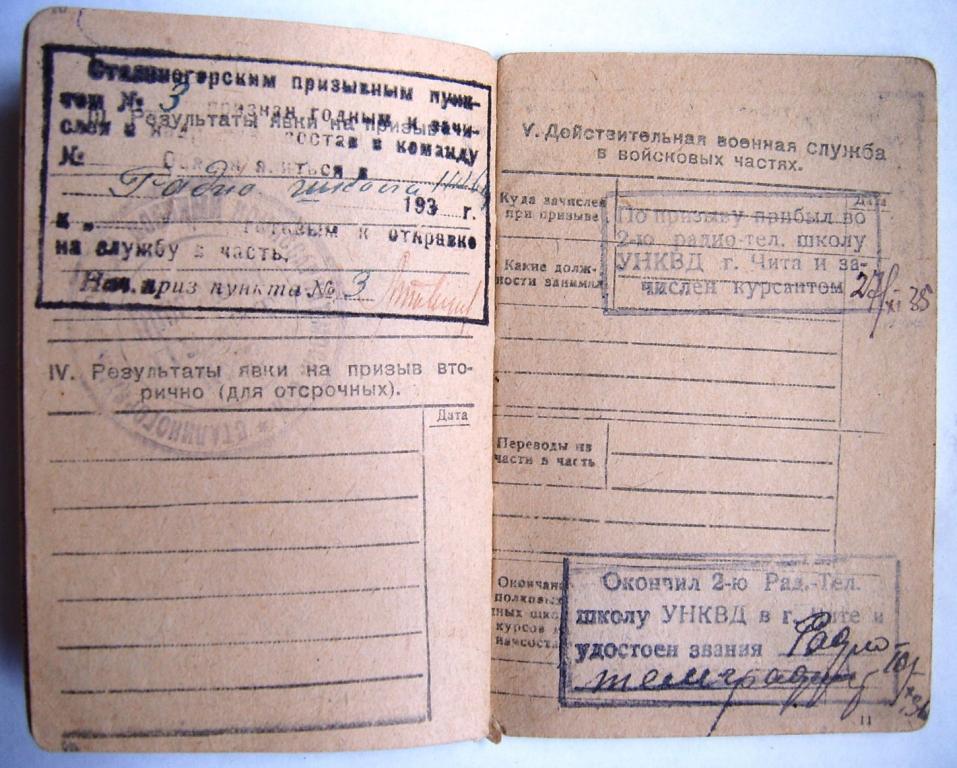 Сталиногорским призывным пунк-
том № 3 признан годным к зачи-
III. Результаты явки на призыв
слен в состав в команду
№ явиться в
Радио школа
193 г.
к „ готовым к отправке
на службу в часть.
Нач. приз пункта № 3
IV. Результаты явки на призыв вто-
рично (для отсрочных).
Дата
V. Действительная военная служба
в войсковых частях.
Куда зачислен
при призыве
Дата
По призыву прибыл во
2-ю радио-тел. школу
УНКВД г. Чита и за-
числен курсантом 27/XI 35
Какие долж-
ности занимал
Переводы из
части в часть
Окончание
полковых
школ
курсов
начсостава
Окончил 2-ю Рад.-Тел.
школу УНКВД в г. Чите и
удостоен звания Радио
телеграфист
11